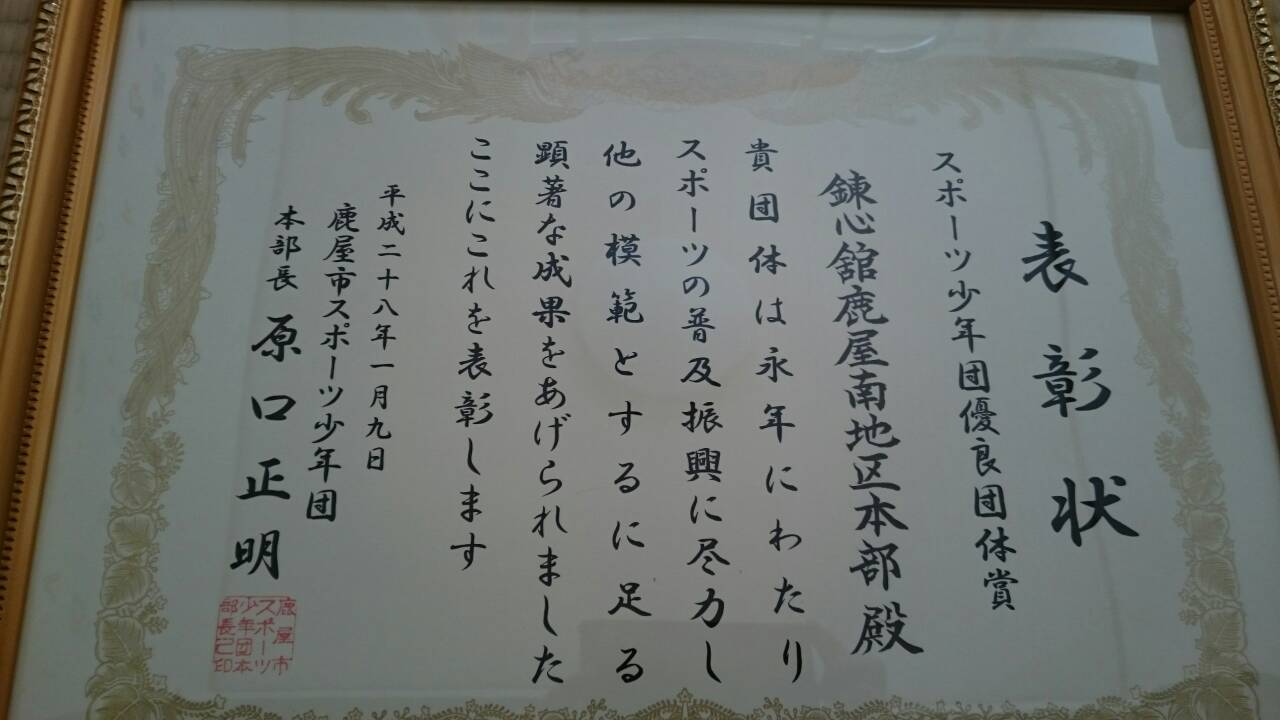 表彰状
スポーツ少年団優良団体賞
錬心舘鹿屋南地区本部殿
貴団体は永年にわたり
スポーツの普及振興に尽力し
他の模範とするに足る
顕著な成果をあげられました
ここにこれを表彰します
平成二十八年一月九日
鹿屋市スポーツ少年団
本部長 原口正明
鹿屋市
スポーツ
少年団本
部長之印